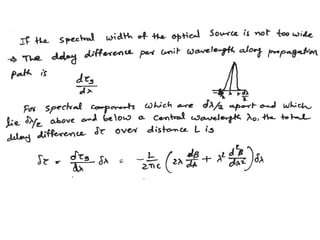 If the spectral width of the optical source is not too wide
→ The delay difference per unit wavelength along propagation
path is
dτg/dλ
For spectral components which are δλ/2 apart and which
lie δλ/2 above and below a central wavelength λ0, the total
delay difference δτ over distance L is
δτ = dτg/dλ δλ = -L/2πc (2λ dβ/dλ + λ² d²β/dλ²) δλ